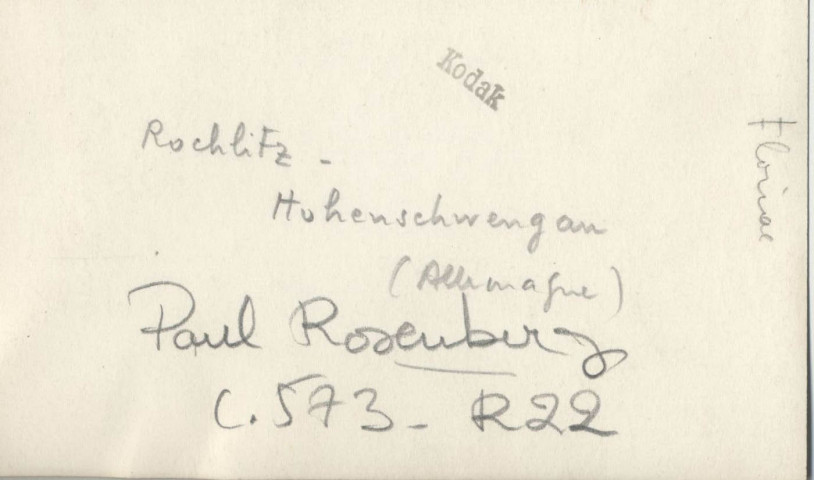 Kodak
Rochlitz -
Hohenschwengau
(Allemagne)
Paul Rosenberg
C.573 - R22